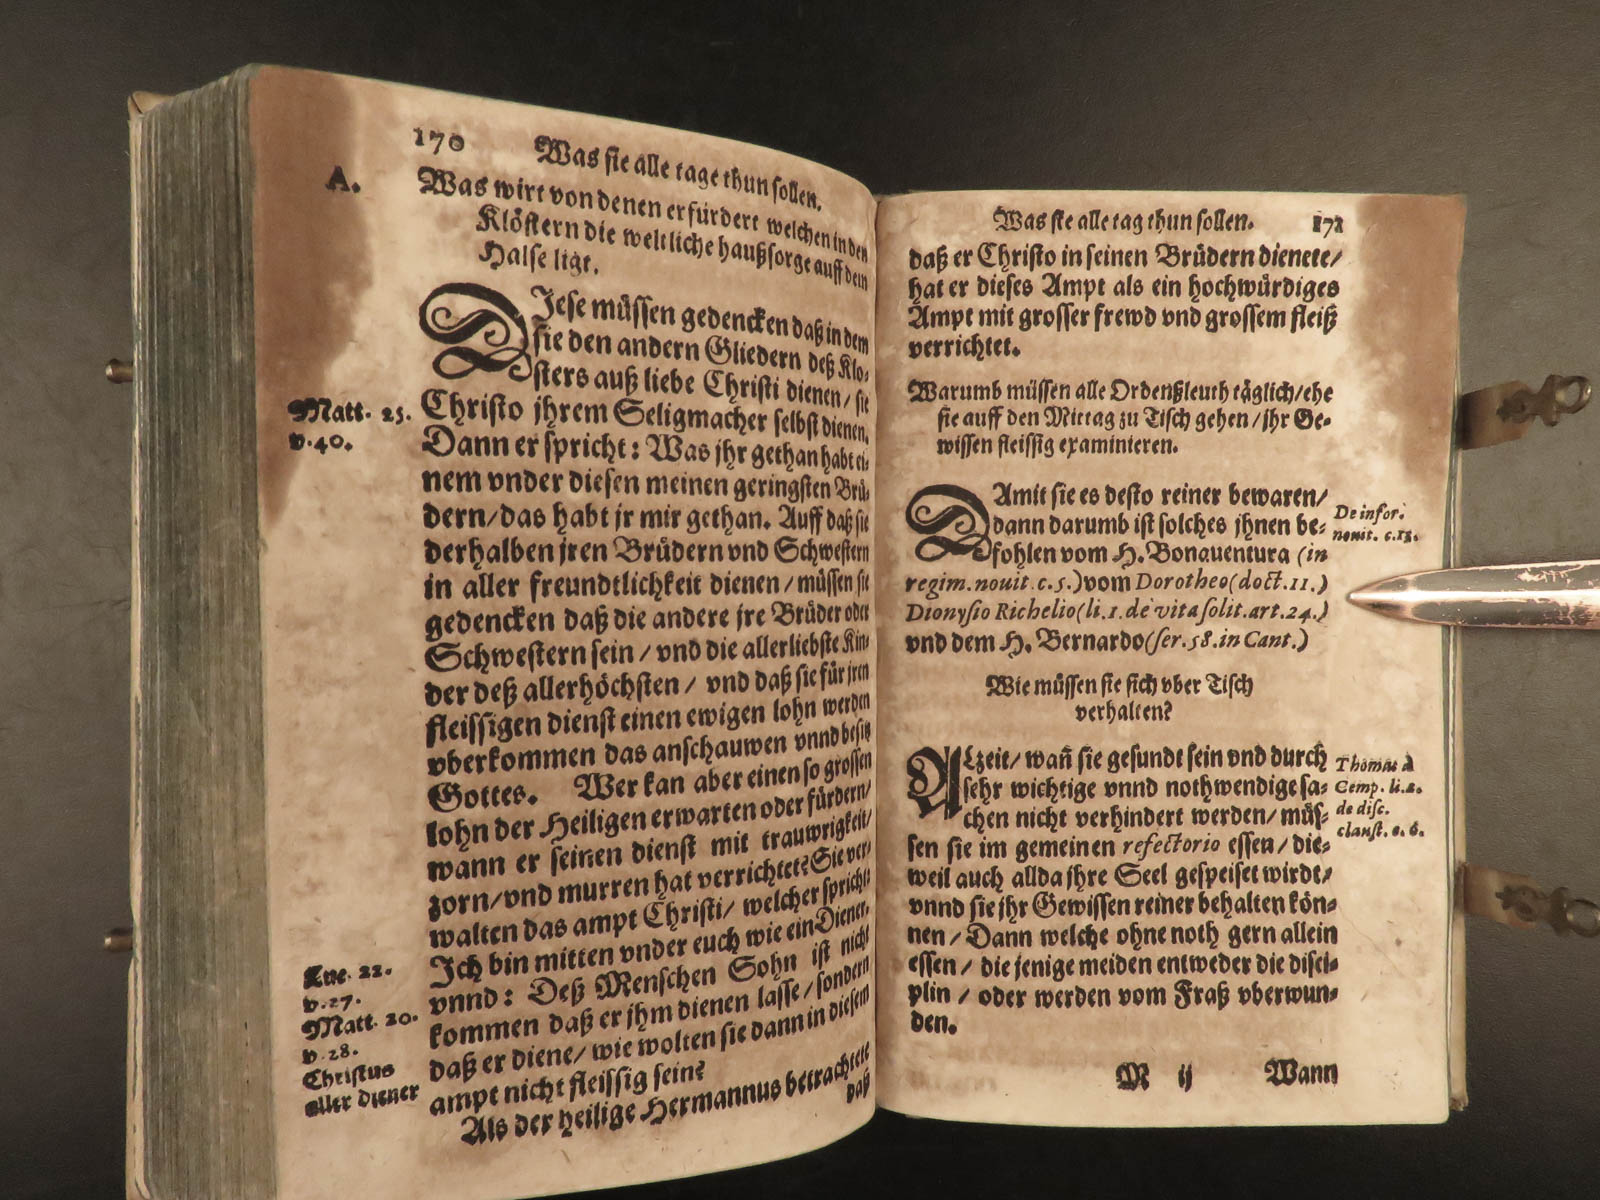 170 Was sie alle tage thun sollen.
A.
Was wirt von denen erfürdert welchen in den
Klöstern die weltliche haußsorge auff dem
Halse ligt.
DIese müssen gedencken daß in dem
sie den andern Gliedern deß Klo-
sters auß liebe Christi dienen / sie
Matt. 25.
v. 40.
Christo jhrem Seligmacher selbst dienen.
Dann er spricht: Was jhr gethan habt ei-
nem vnder diesen meinen geringsten Brü-
dern/das habt jr mir gethan. Auff daß sie
derhalben jren Brüdern vnd Schwestern
in aller freundtlichkeit dienen / müssen sie
gedencken daß die andere jre Brüder oder
Schwestern sein / vnd die allerliebste Kin-
der deß allerhöchsten / vnd daß sie für jren
fleissigen dienst einen ewigen lohn werden
vberkommen das anschauwen vnnd besitz
Gottes. Wer kan aber einen so grossen
lohn der Heiligen erwarten oder fürdern/
wann er seinen dienst mit trauwrigkeit/
zorn/vnd murren hat verrichtet? Sie ver-
walten das ampt Christi/ welcher spricht:
Luc. 22.
v. 27.
Matt. 20.
v. 28.
Christus
aller diener
Ich bin mitten vnder euch wie ein Diener,
vnnd: Deß Menschen Sohn ist nicht
kommen daß er jhm dienen lasse / sondern
daß er diene/ wie wolten sie dann in diesem
ampt nicht fleissig sein?
Als der heilige Hermannus betrachtete
daß
Was sie alle tag thun sollen. 171
daß er Christo in seinen Brüdern dienete/
hat er dieses Ampt als ein hochwürdiges
Ampt mit grosser frewd vnd grossem fleiß
verrichtet.
Warumb müssen alle Ordenßleuth täglich/ehe
sie auff den Mittag zu Tisch gehen/jhr Ge-
wissen fleissig examinieren.
DAmit sie es desto reiner bewaren/
dann darumb ist solches jhnen be-
fohlen vom H. Bonauentura (in
regim. nouit. c. 5.) vom Dorotheo (doct. 11.)
Dionysio Richelio (li. 1. de vita solit. art. 24.)
vnd dem H. Bernardo (ser. 58. in Cant.)
De infor.
nouit. c. 18.
Wie müssen sie sich vber Tisch
verhalten?
ALzeit/ wañ sie gesundt sein vnd durch
sehr wichtige vnnd nothwendige sa-
chen nicht verhindert werden/ müs-
sen sie im gemeinen refectorio essen / die-
weil auch allda jhre Seel gespeiset wirdt/
vnnd sie jhr Gewissen reiner behalten kön-
nen / Dann welche ohne noth gern allein
essen / die jenige meiden entweder die disci-
plin / oder werden vom Fraß vberwun-
den.
Thomas à
Cemp. li. 2.
de disc.
claust. c. 6.
M ij Wann